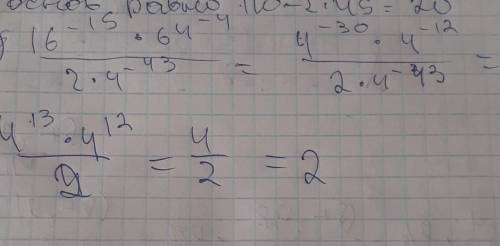 основ равно 110-2·45=20
16^{-15} · 64^{-4} / 2·4^{-43} = 4^{-30} · 4^{-12} / 2·4^{-43} =
4^{13} · 4^{12} / 2 = 4/2 = 2